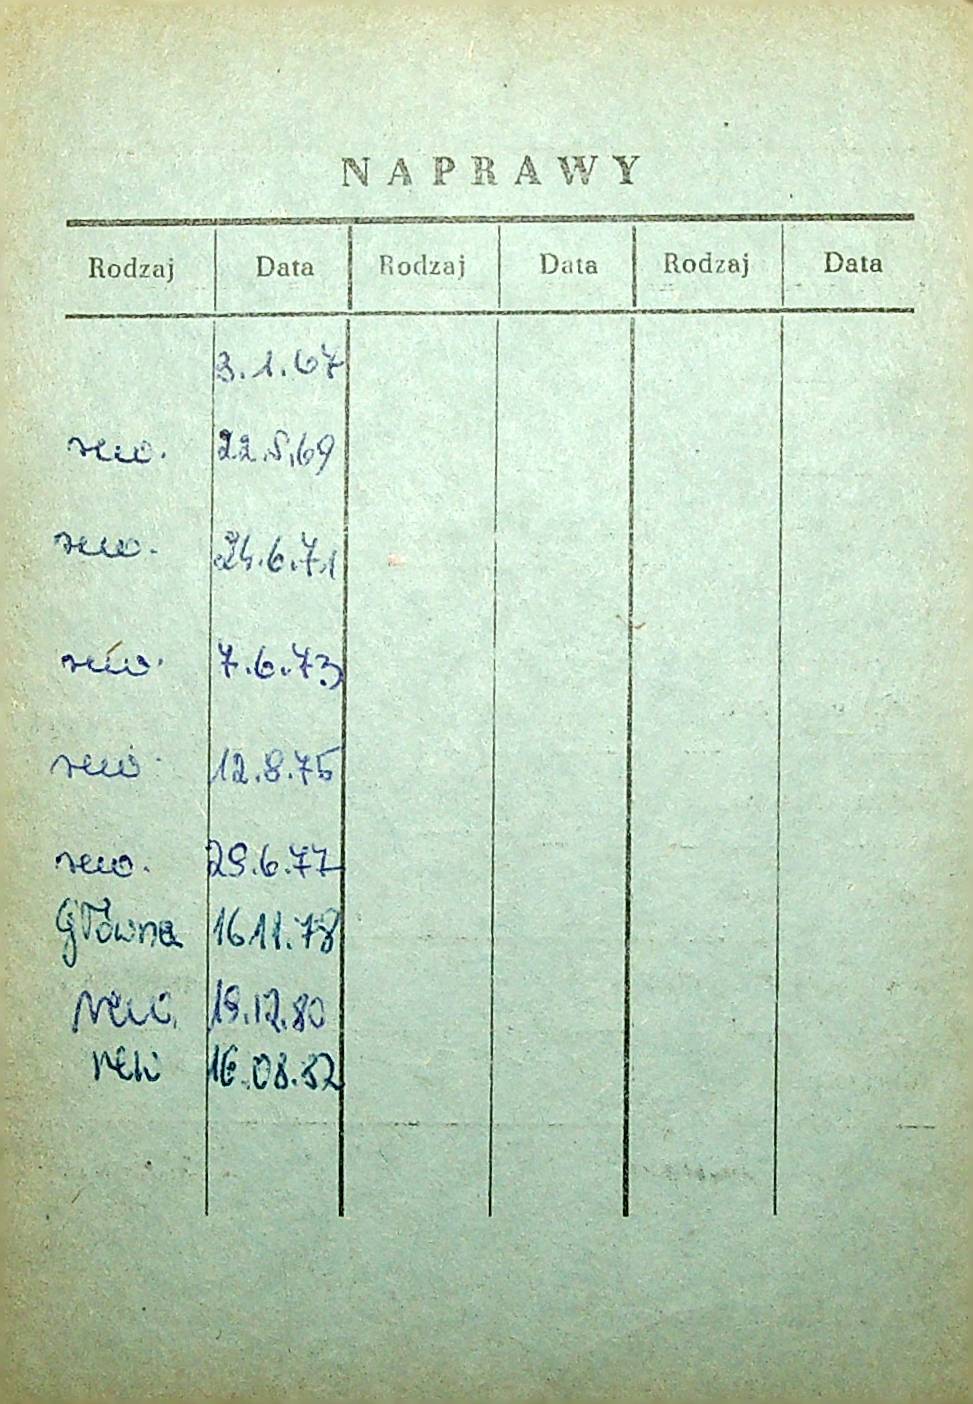 NAPRAWY
Rodzaj Data Rodzaj Data Rodzaj Data
3.1.67
rew. 22.5.69
rew. 24.6.71
rew. 7.6.73
rew. 12.8.75
rew. 29.6.77
Główna 16.11.78
rew. 19.12.80
rew 16.08.82